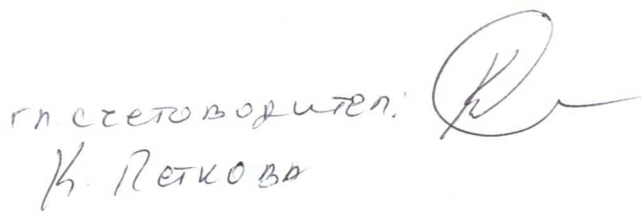 гл. счетоводител:
К. Петкова